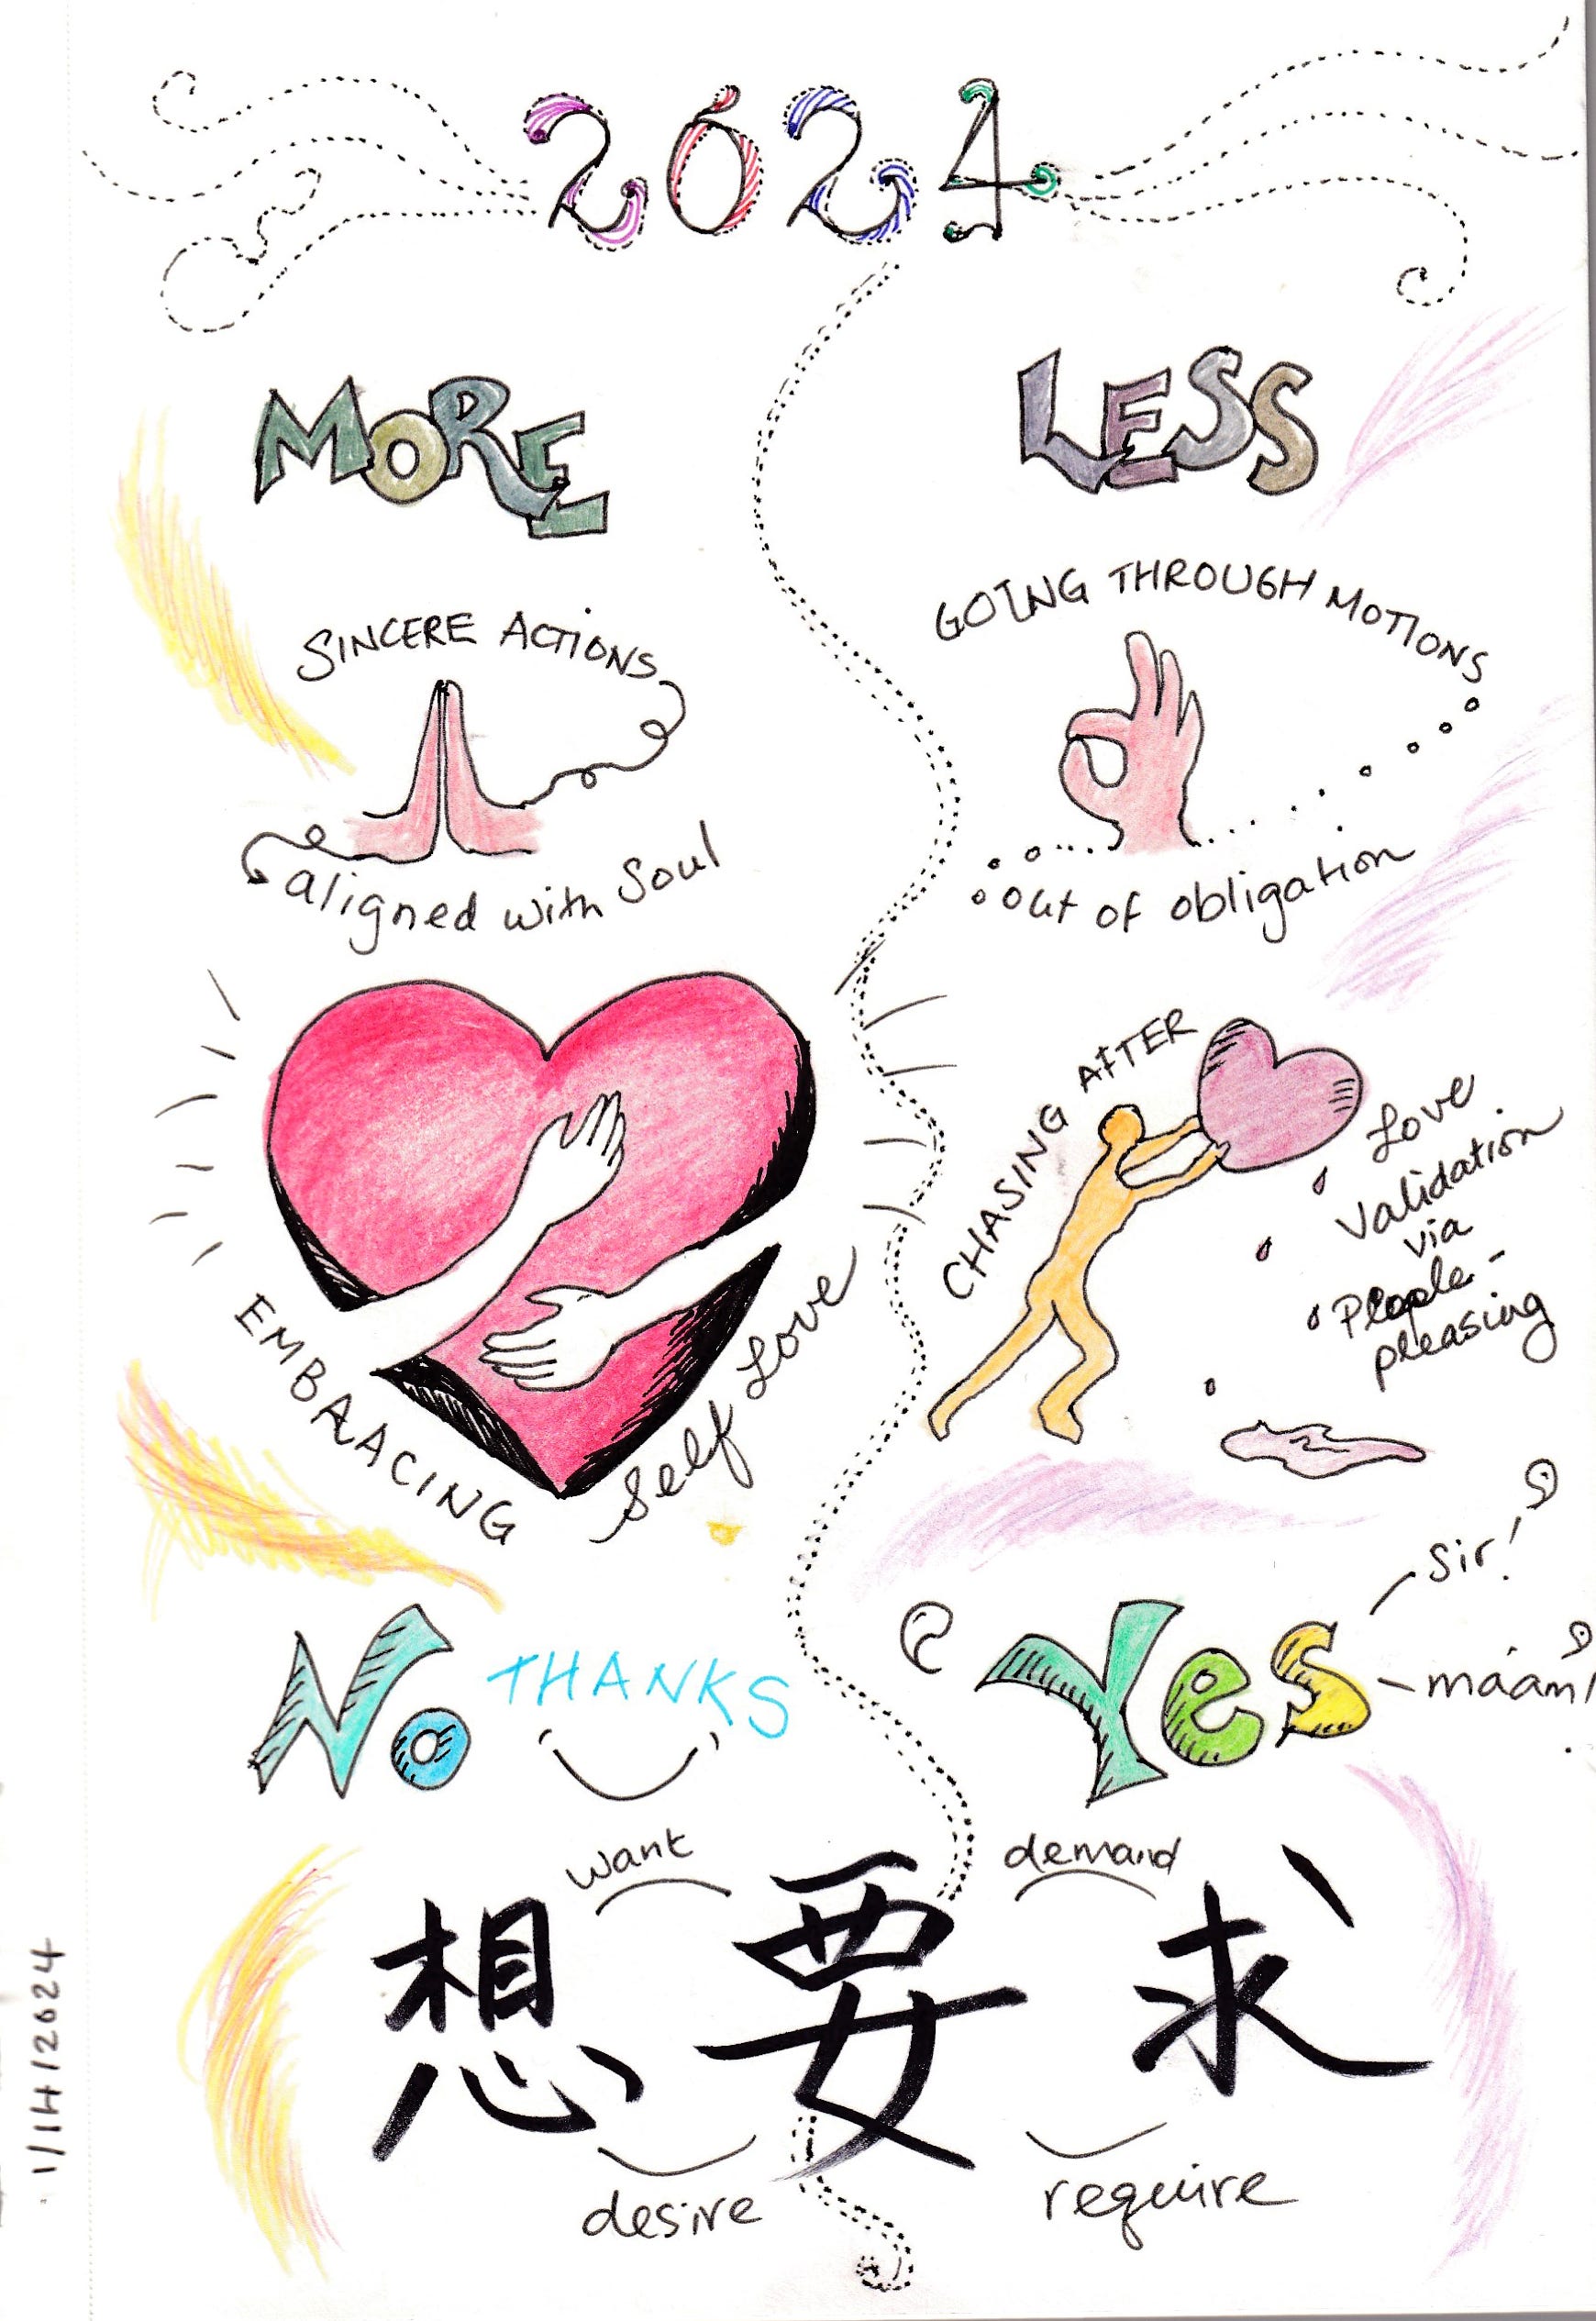 2024
MORE
LESS
SINCERE ACTIONS
aligned with Soul
GOING THROUGH MOTIONS
out of obligation
EMBRACING
Self Love
CHASING AFTER
Love
Validation
via
People-
pleasing
No THANKS
Yes
Sir!
ma'am!
want
demand
想要求
desire
require
1/14/2024